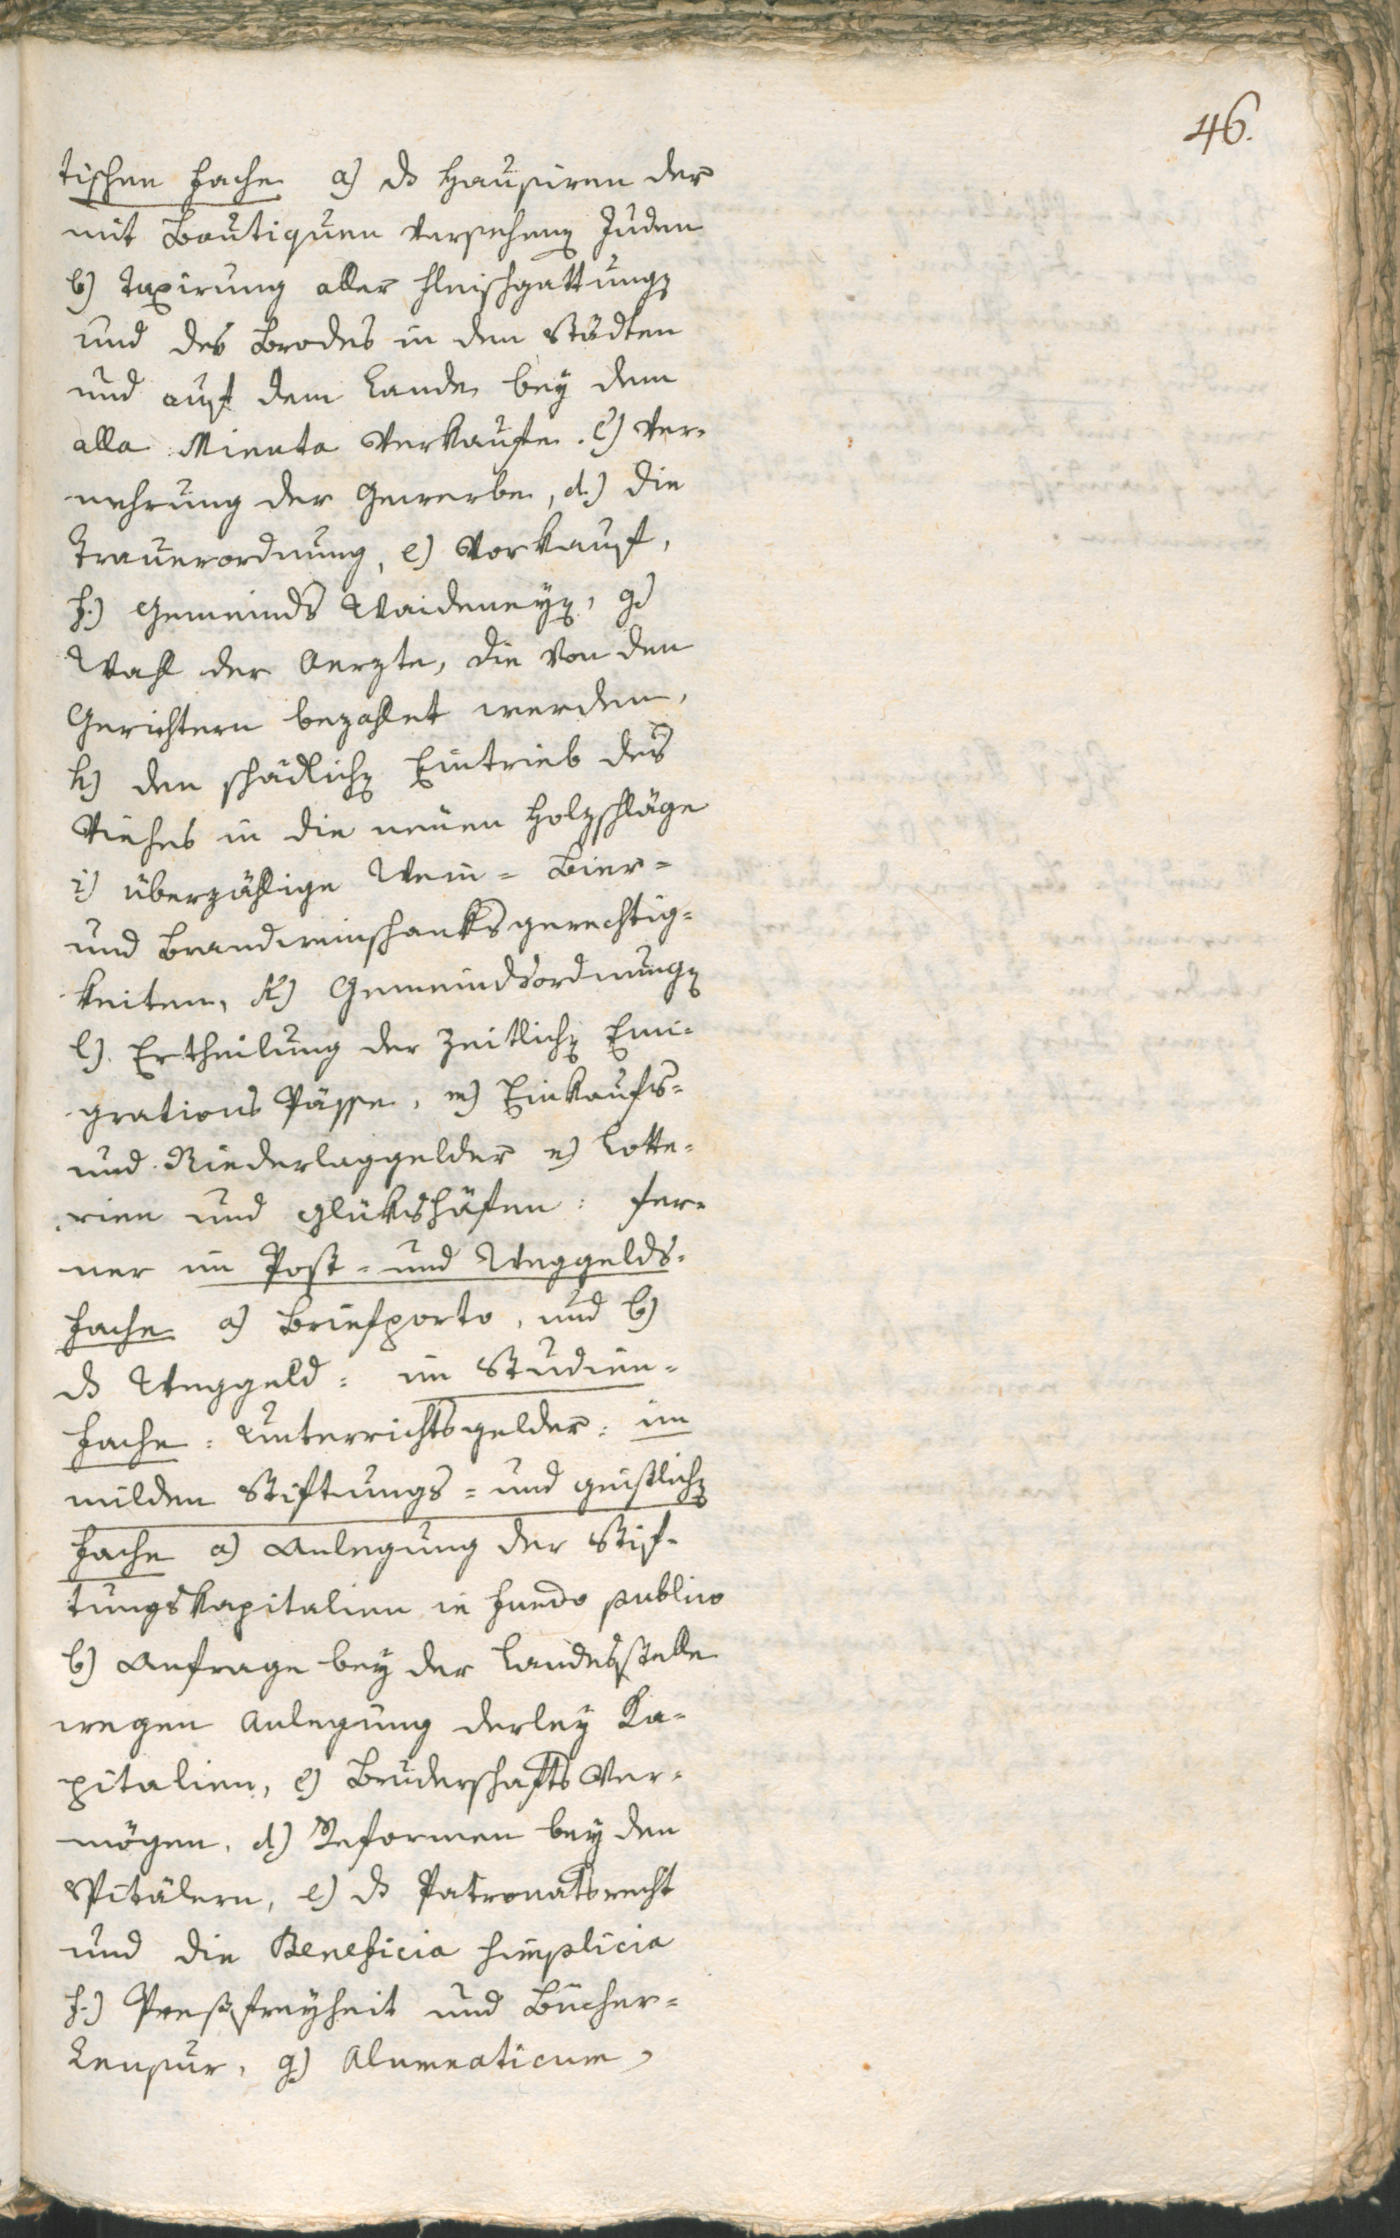 46.
tischen Fache a) ds Hausiren der
mit Boutiquen versehenen Juden
b) Taxirung aller Fleischgattungen
und des Brodes in den Städten
und auf dem Lande bey dem
alla Minuta Verkaufe. c) Ver-
mehrung der Gewerbe, d.) die
Trauerordnung, e) Vorkauf,
f.) Gemeinds Waideneyen, g)
Wahl der Aerzte, die von den
Gerichtern bezahlet werden,
h) den schädlichen Eintrieb des
Viehes in die neuen Holzschläge
i) überzählige Wein- Bier-
und Brandweinschanksgerechtig-
keiten, k) Gemeindsordnungen
l). Ertheilung der zeitlichen Emi-
grations Pässe, m) Einkaufs-
und Niederlaggelder n) Lotte-
rien und Glükshäfen: fer-
ner im Post- und Weggelds-
fache a) Briefporto, und b)
ds Weggeld: im Studien-
fache: Unterrichtsgelder: im
milden Stiftungs- und geistlichen
Fache a) Anlegung der Stif-
tungskapitalien in fundo publico
b) Anfrage bey der Landesstelle
wegen Anlegung derley Ka-
pitalien, c) Bruderschafts Ver-
mögen. d) Reformen bey den
Spitälern, e) ds Patronatsrecht
und die Beneficia simplicia
f.) Preßfreyheit und Bücher-
Zensur, g) Alumnaticum,